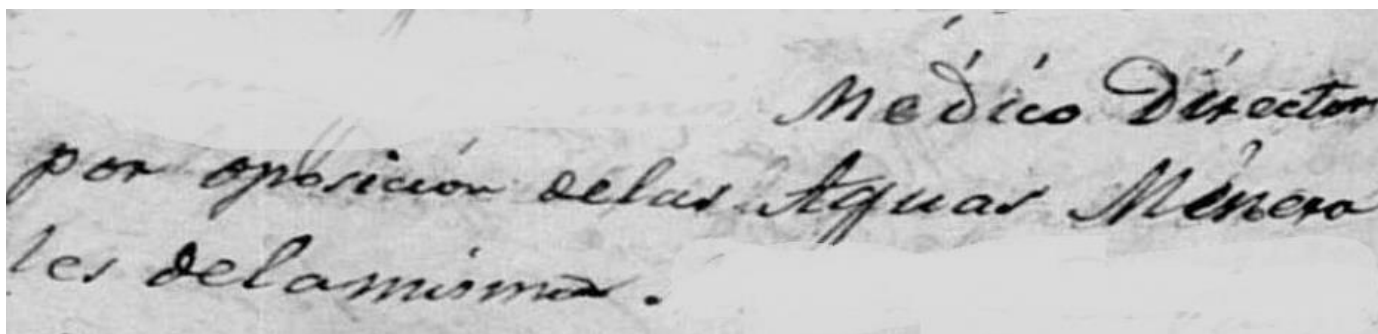 Medico Director
por oposicion delas Aguas Minera
les delamisma.